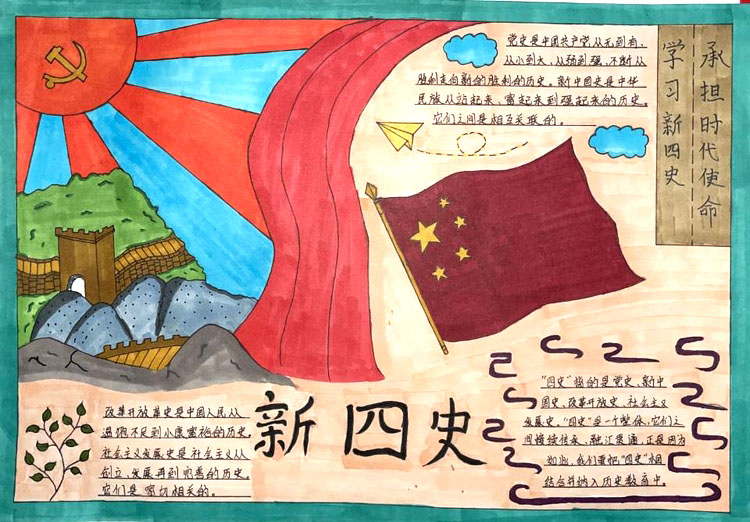 党史是中国共产党从无到有、
从小到大、从弱到强、不断从
胜利走向新的胜利的历史。新中国史是中华
民族从站起来、富起来到强起来的历史。
它们之间是相互关联的。
承担时代使命
学习新四史
新四史
改革开放革史是中国人民从
温饱不足到小康富裕的历史。
社会主义发展史是社会主义从
创立、发展再到完善的历史。
它们是密切相关的。
"四史"指的是党史、新中
国史、改革开放史、社会主义
发展史。"四史"是一个整体，它们之
间接续传承、融汇贯通，正是因为
如此，我们要把"四史"相
结合并纳入历史教育中。